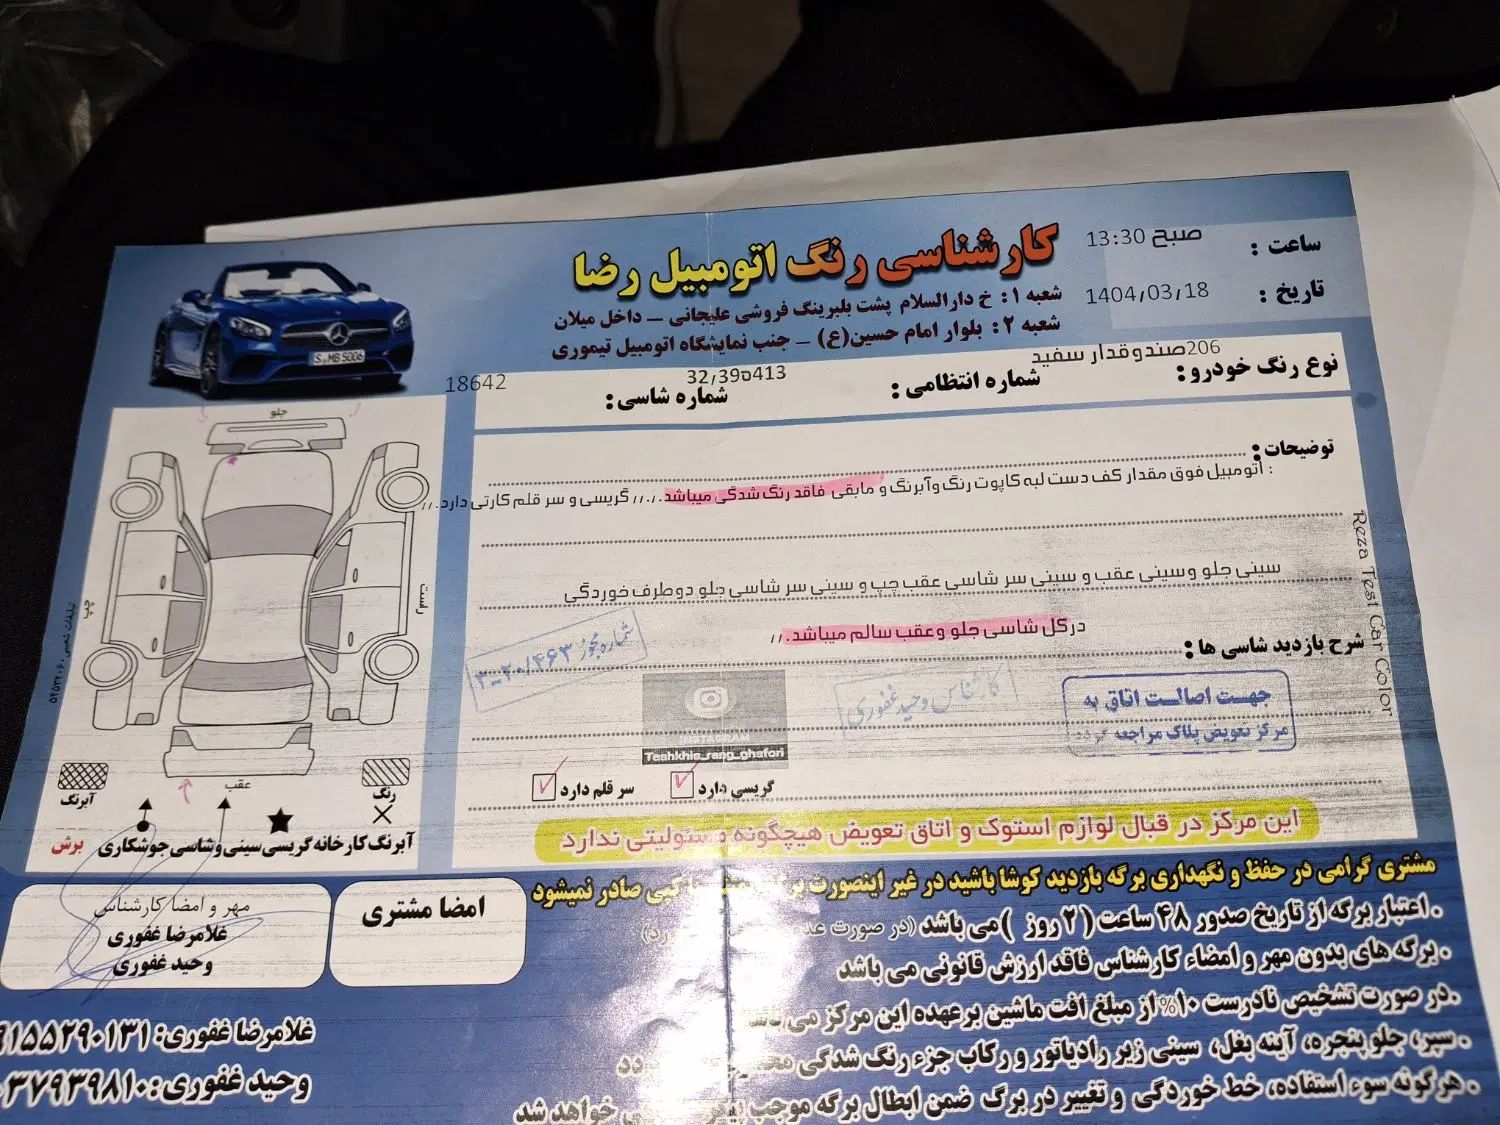 کارشناسی رنگ اتومبیل رضا
ساعت : صبح 13:30
تاریخ : 1404,03,18
شعبه ۱: خ دارالسلام پشت بلبرینگ فروشی علیجانی – داخل میلان
شعبه ۲: بلوار امام حسین(ع) – جنب نمایشگاه اتومبیل تیموری
نوع رنگ خودرو: 206صندوقدار سفید
شماره انتظامی : 32,39ه413
شماره شاسی: 18642
توضیحات:
: اتومبیل فوق مقدار کف دست لبه کاپوت رنگ وآبرنگ و مابقی فاقد رنگ شدگی میباشد.,.,, گریسی و سر قلم کارتی دارد.,,
سینی جلو وسینی عقب و سینی سر شاسی عقب چپ و سینی سر شاسی جلو دوطرف خوردگی
درکل شاسی جلو وعقب سالم میباشد.,,
شرح بازدید شاسی ها :
شماره مجوز ۲-۲۰/۴۶۳
کارشناس وحید غفوری
جهت اصالت اتاق به
مرکز تعویض پلاک مراجعه گردد
INSTAGRAM
Teshkhis_rang_ghafori
گریسی دارد
سر قلم دارد
این مرکز در قبال لوازم استوک و اتاق تعویض هیچگونه مسئولیتی ندارد
Reza Test Car Color
S MB 5006
جلو
راست
چپ
عقب
تبلیغات شعیبی
رنگ
آبرنگ
آبرنگ کارخانه
گریسی
سینی وشاسی
جوشکاری
برش
مشتری گرامی در حفظ و نگهداری برگه بازدید کوشا باشید در غیر اینصورت کپی صادر نمیشود
. اعتبار برگه از تاریخ صدور ۴۸ ساعت (۲ روز ) می باشد (در صورت
. برگه های بدون مهر و امضاء کارشناس فاقد ارزش قانونی می باشد
.در صورت تشخیص نادرست ۱۰% از مبلغ افت ماشین برعهده این مرکز می باشد
. سپر، جلو پنجره، آینه بغل، سینی زیر رادیاتور و رکاب جزء رنگ شدگی
. هرگونه سوء استفاده، خط خوردگی و تغییر در برگ ضمن ابطال برگه موجب خواهد شد
امضا مشتری
مهر و امضا کارشناس
غلامرضا غفوری
وحید غفوری
غلامرضا غفوری: ۹۱۵۵۲۹۰۱۳۱
وحید غفوری: ۰۳۷۹۳۹۸۱۰